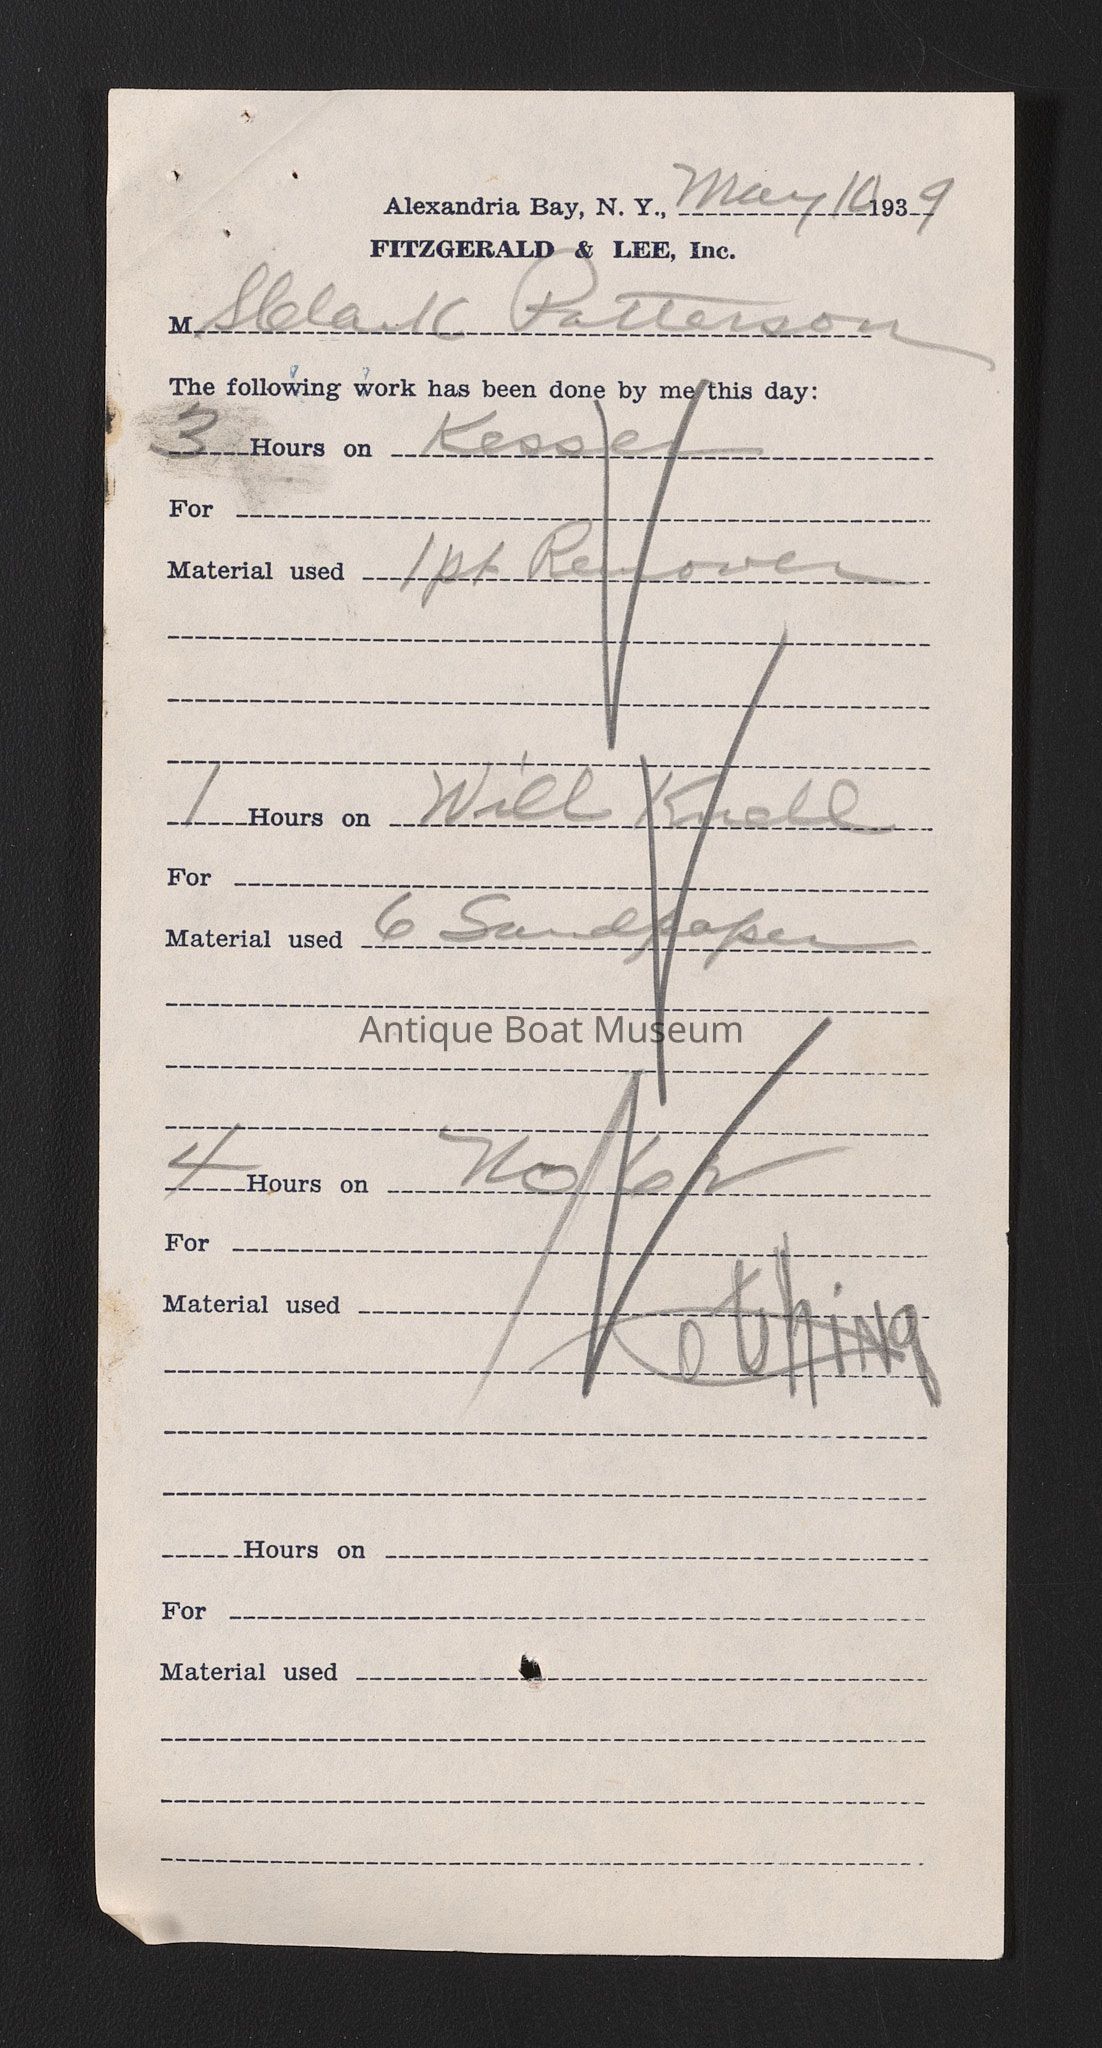 Alexandria Bay, N. Y., May 10 1939
FITZGERALD & LEE, Inc.
M. Patterson
The following work has been done by me this day:
3 Hours on Kesser
For
Material used 1 pt Remover
1 Hours on Will Knell
For
Material used 6 Sandpaper
Antique Boat Museum
4 Hours on Nokor
For
Material used
Hours on
For
Material used